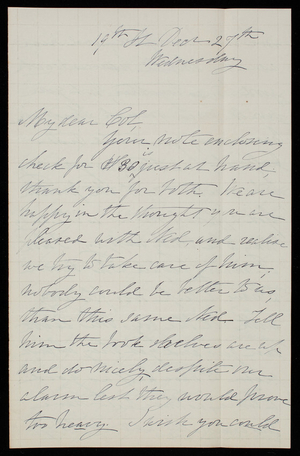 19th St Dec 27th
Wednesday
My dear Col.
Your note enclosing
check for $30 just at hand,
thank you for both. We are
happy in the thought you are
pleased with Ned, and while
we try to take care of him,
nobody could be better to us
than this same Ned. Tell
him the book shelves are up
and do nicely, despite our
alarm lest they would prove
too heavy. I wish you could